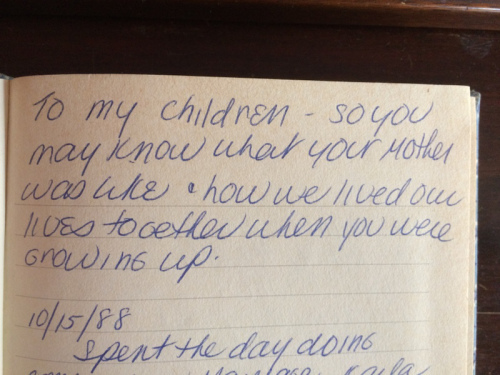 To my children - so you
may know what your Mother
was like & how we lived our
lives together when you were
growing up.
10/15/88
Spent the day doing